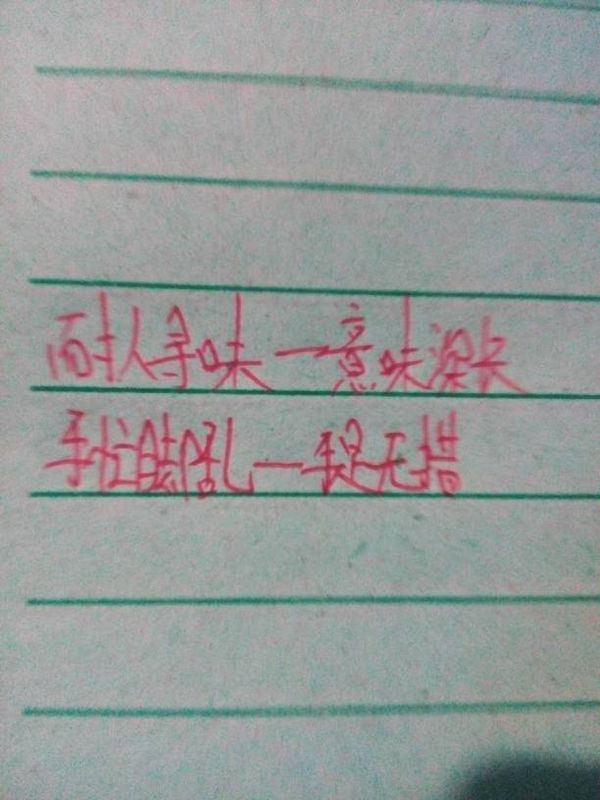 耐人寻味一意味深长
手忙脚乱一手足无措